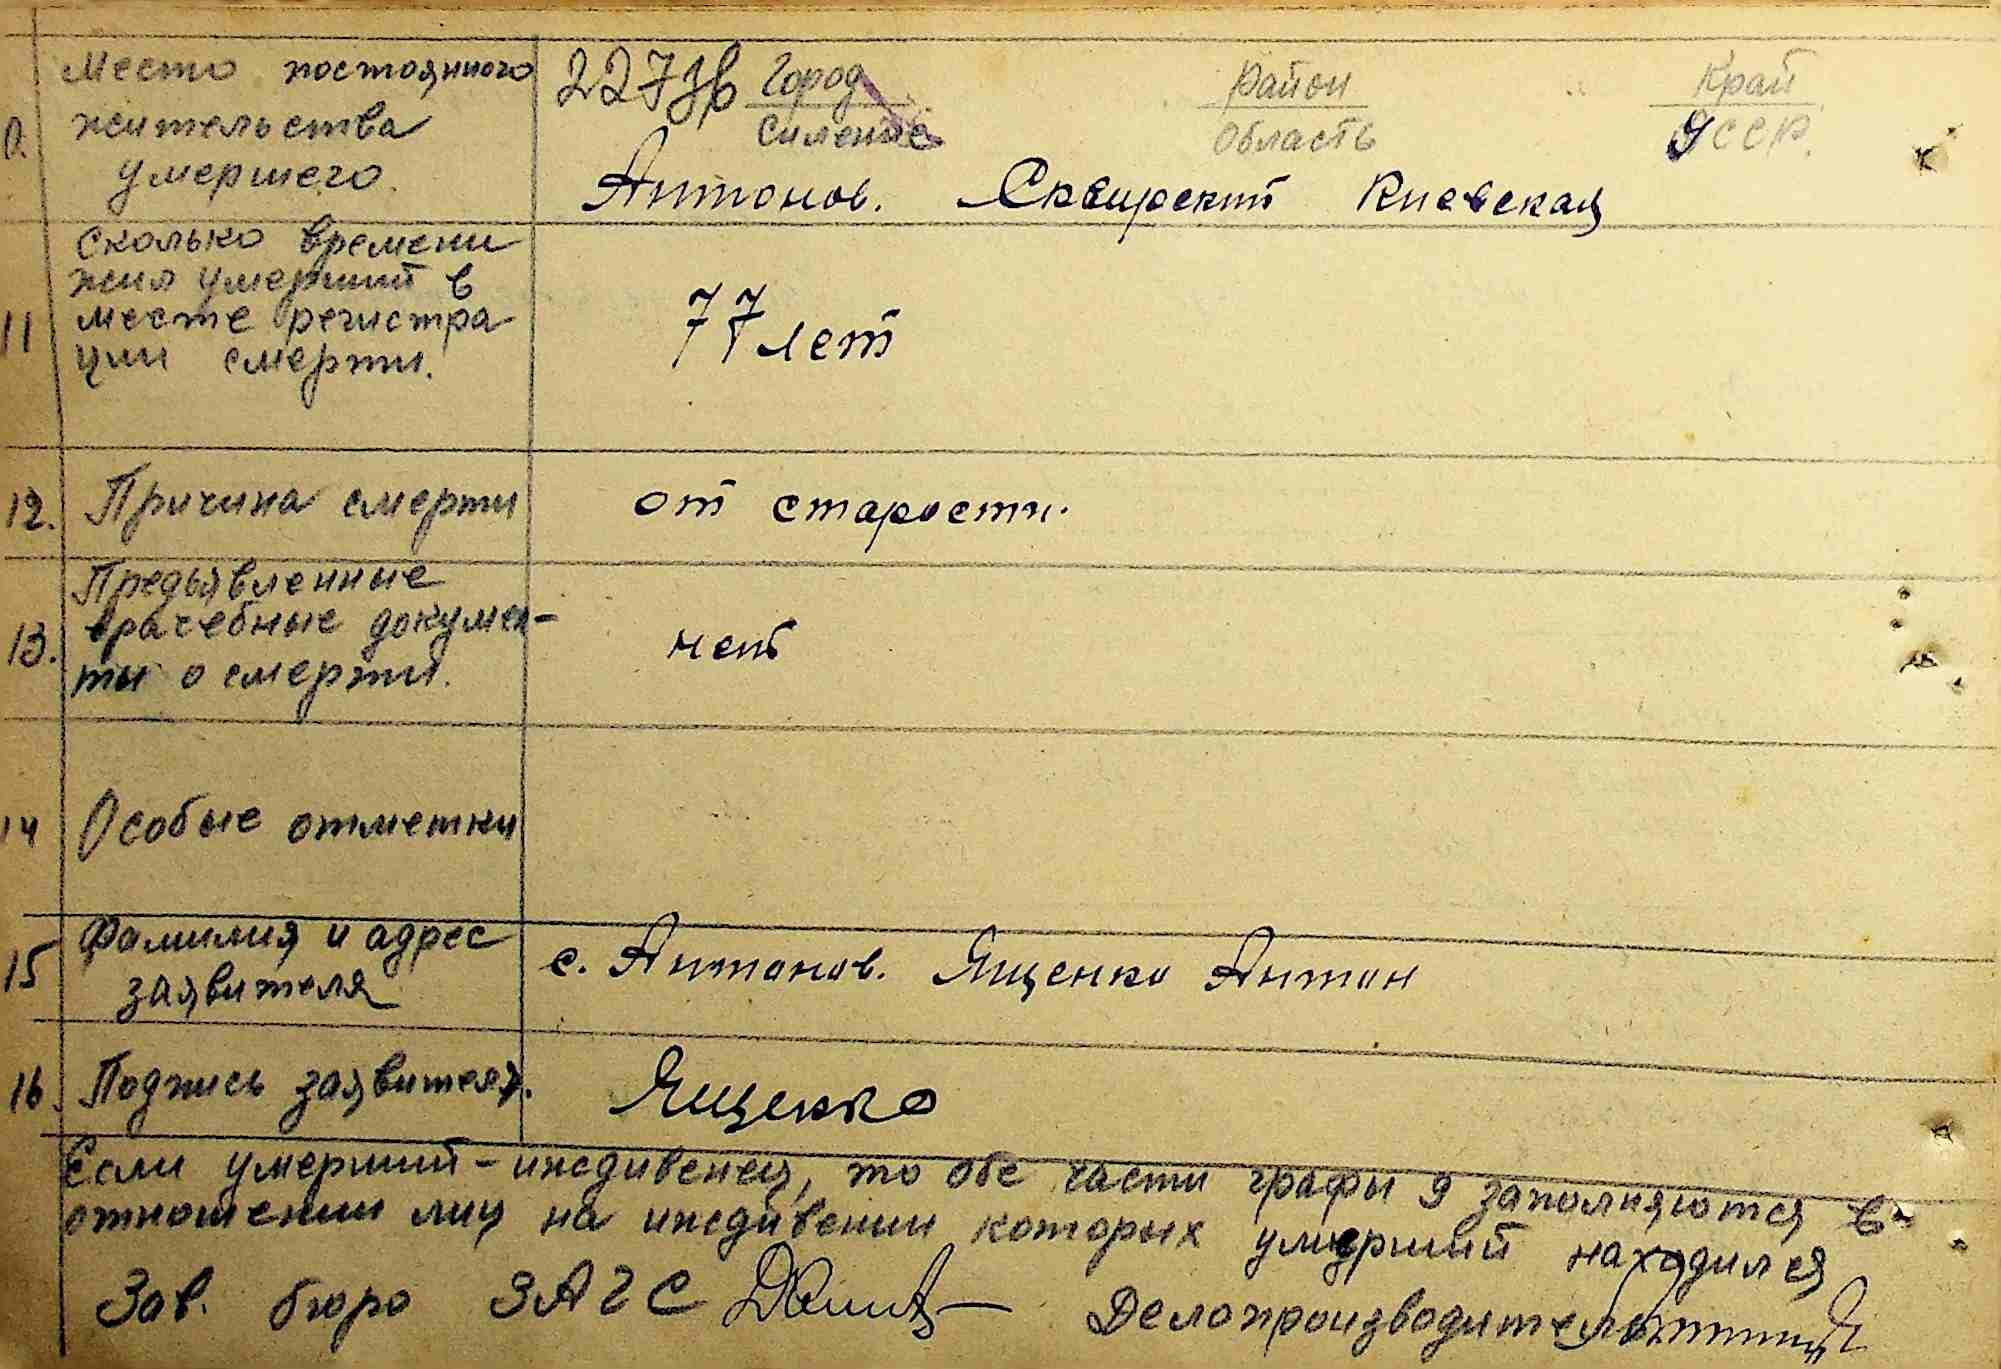 Место постоянного
0. жительства
умершего.
227зв Город Район Край
Силение Область УССР.
Антонов. Сквирский Киевская
Сколько времени
жил умерший в
11 месте регистра
ции смерти.
77 лет
12. Причина смерти от старости.
Предъявленные
врачебные докумен-
13. ты о смерти.
нет
14 Особые отметки
15 Фамилия и адрес
заявителя
с. Антонов. Ященко Антон
16. Подпись заявителя. Ященко
Если умерший - иждивенец, то обе части графы 9 заполняются в
отношении лиц на иждивении которых умерший находился
Зав. бюро ЗАГС Делопроизводитель